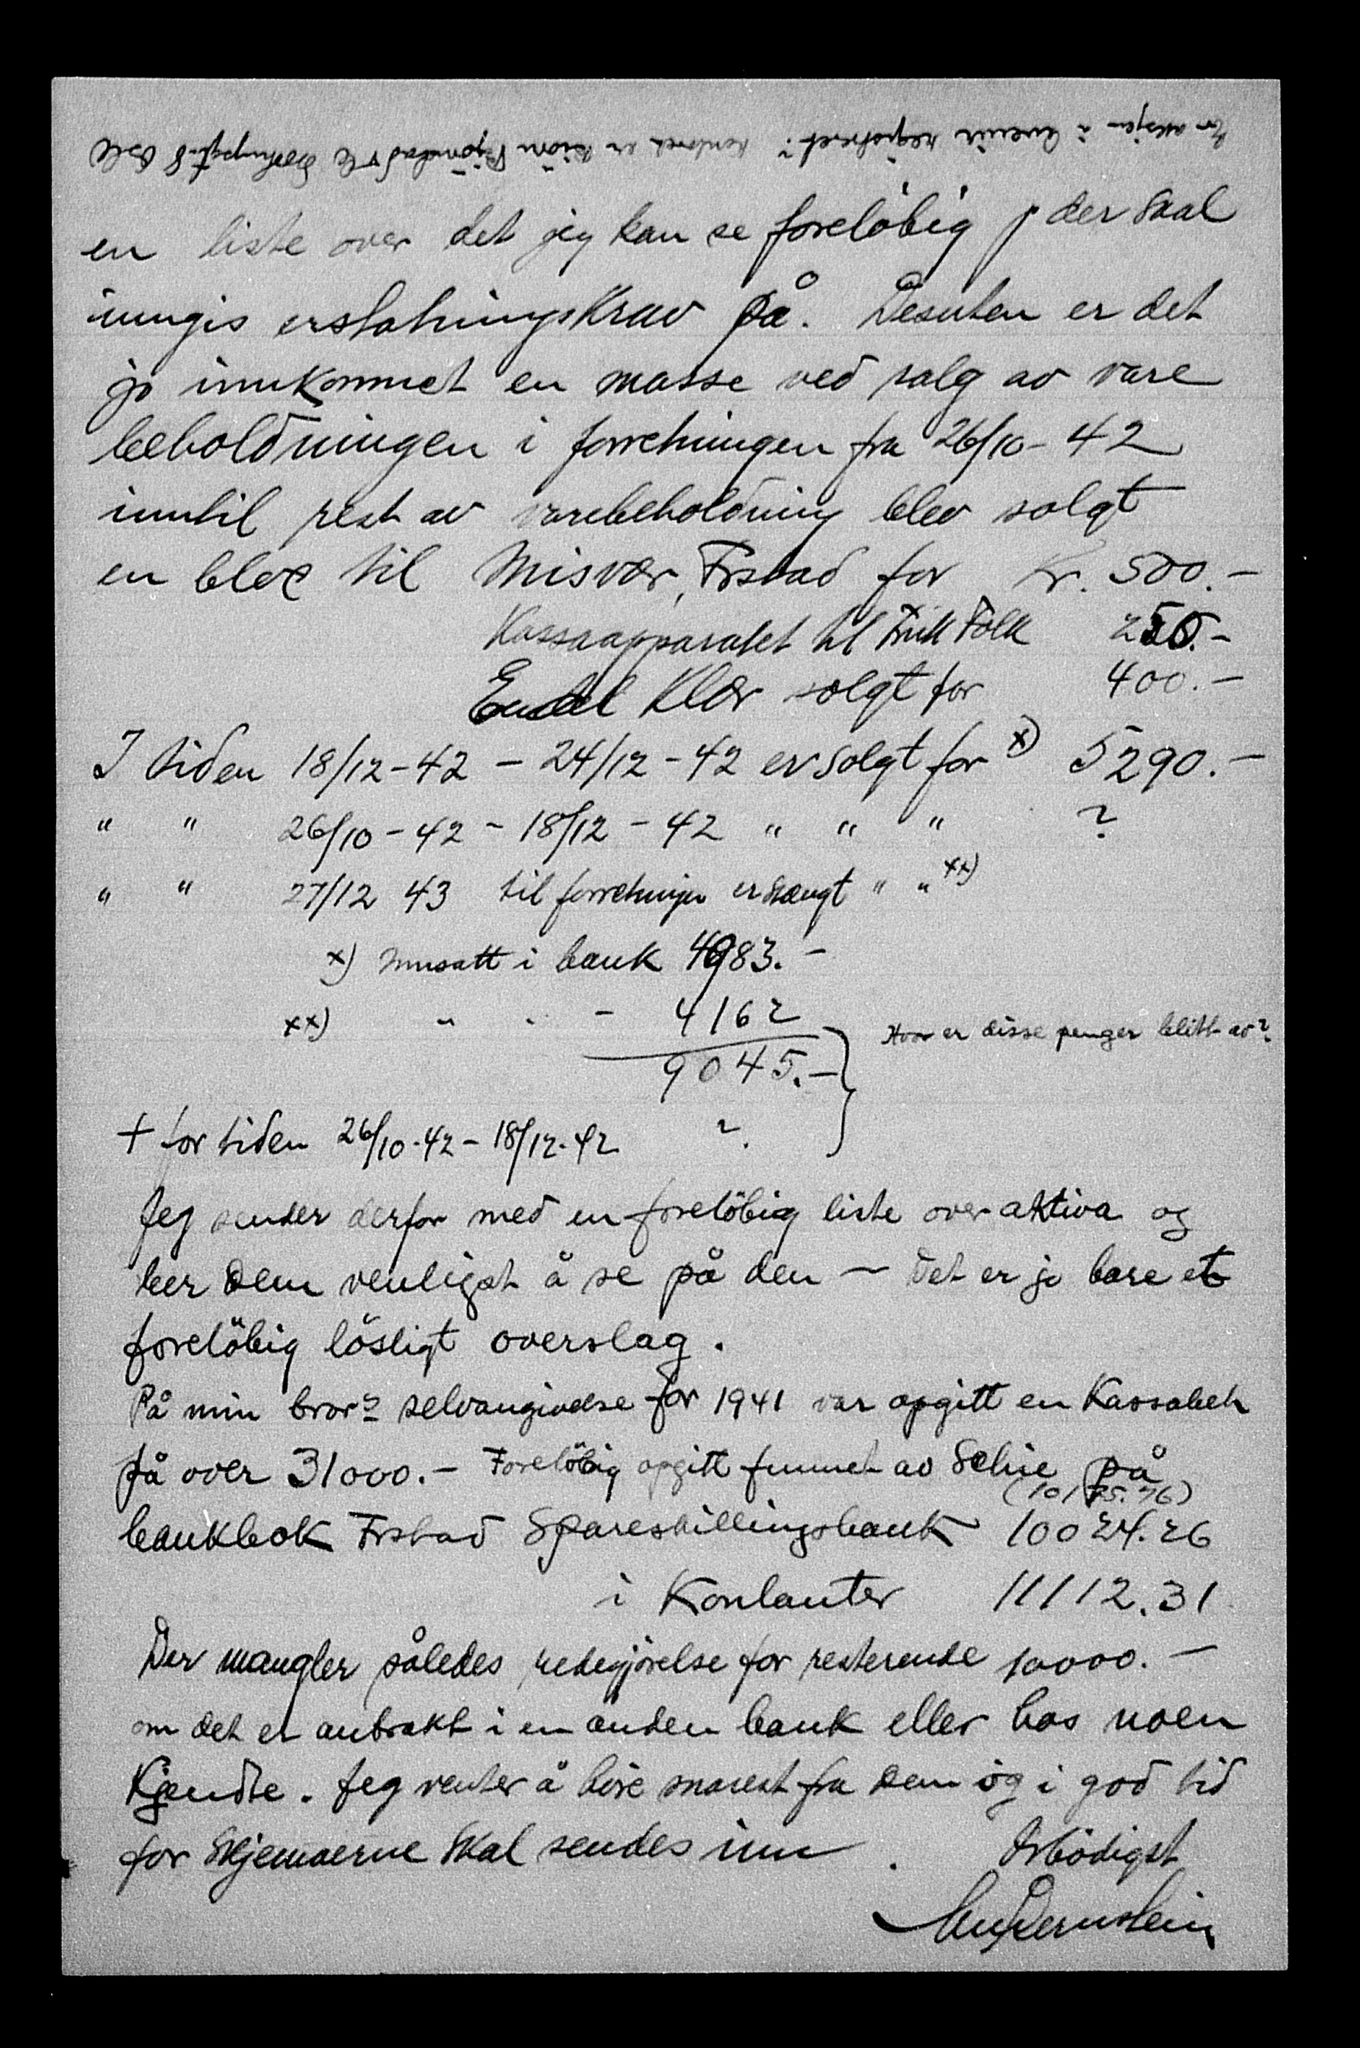 Er aksjen i Avenir registreret? kontoret er Biörn Bjørnstad & Co
en liste over det jeg kan se foreløbig der skal
inngis erstatningskrav på. Desuten er det
jo innkommet en masse ved salg av vare
beholdningen i forretningen fra 26/10-42
inntil rest av varebeholdning blev solgt
en bloc til Misvær, Trstad for Kr. 500.-
Kassaapparatet til Erik Falk 250.-
Endel Klær solgt for 400.-
I tiden 18/12-42 - 24/12-42 er solgt for x) 5290.-
" " 26/10-42 - 18/12-42 " " " ?
" " 27/12 43 til forretningen er stængt " " xx)
x) innsatt i bank 4983.-
xx) " " - 4162
9045.-
Hvor er disse penger blitt av?
+ for tiden 26/10-42 - 18/12-42 ?
Jeg sender derfor med en foreløbig liste over aktiva og
ber Dem venligst å se på den - Det er jo bare et
foreløbig løsligt overslag.
På min brors selvangivelse for 1941 var opgitt en Kassabeh
på over 31000.- Foreløbig opgitt funnet av Selvie på
(10175.76)
bankbok Trstad Spareskillingsbank 10024.26
i Kontanter 11112.31
Der mangler således redegjørelse for resterende 10000.-
om det er anbrakt i en anden bank eller hos noen
Kjendte. Jeg venter å høre snarest fra Dem og i god tid
for Skjemaerne skal sendes inn. Ærbödigst
Bernstein